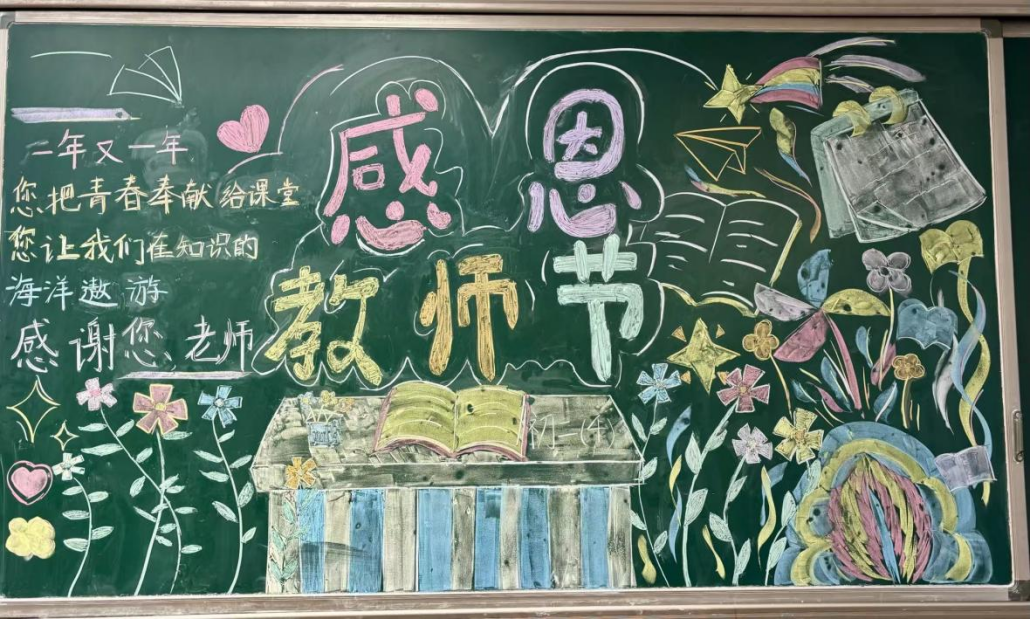 感恩
教师节
二年又一年
您把青春奉献给课堂
您让我们在知识的
海洋遨游
感谢您老师
初一(4)